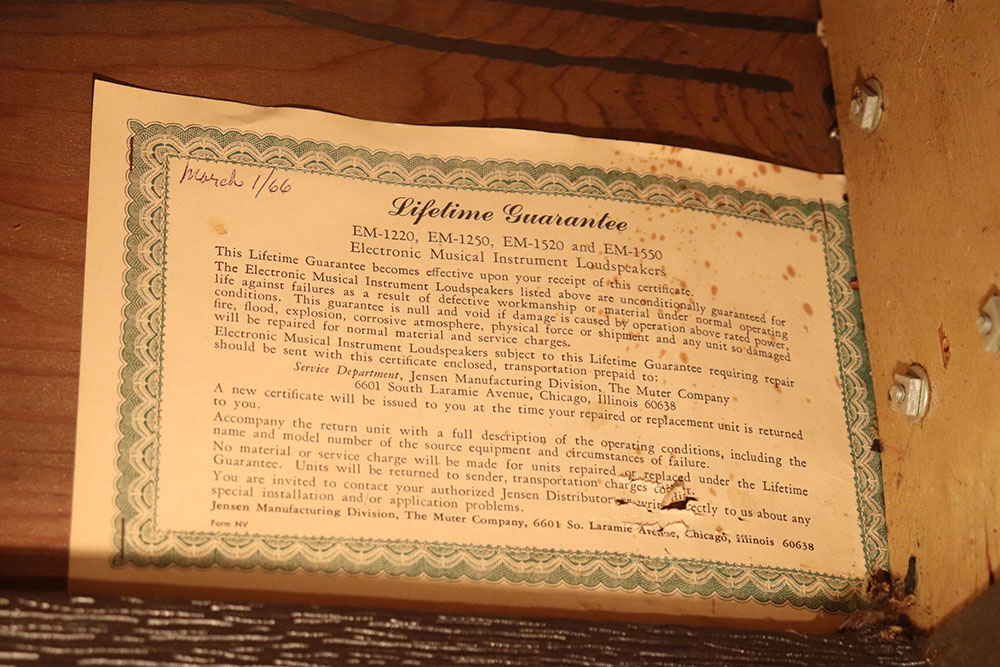 March 1/66
Lifetime Guarantee
EM-1220, EM-1250, EM-1520 and EM-1550
Electronic Musical Instrument Loudspeakers
This Lifetime Guarantee becomes effective upon your receipt of this certificate.
The Electronic Musical Instrument Loudspeakers listed above are unconditionally guaranteed for
life against failures as a result of defective workmanship or material under normal operating
conditions. This guarantee is null and void if damage is caused by operation above rated power,
fire, flood, explosion, corrosive atmosphere, physical force or shipment and any unit so damaged
will be repaired for normal material and service charges.
Electronic Musical Instrument Loudspeakers subject to this Lifetime Guarantee requiring repair
should be sent with this certificate enclosed, transportation prepaid to:
Service Department, Jensen Manufacturing Division, The Muter Company
6601 South Laramie Avenue, Chicago, Illinois 60638
A new certificate will be issued to you at the time your repaired or replacement unit is returned
to you.
Accompany the return unit with a full description of the operating conditions, including the
name and model number of the source equipment and circumstances of failure.
No material or service charge will be made for units repaired or replaced under the Lifetime
Guarantee. Units will be returned to sender, transportation charges
You are invited to contact your authorized Jensen Distributor to us about any
special installation and/or application problems.
Jensen Manufacturing Division, The Muter Company, 6601 So. Laramie Avenue, Chicago, Illinois 60638
Form NV